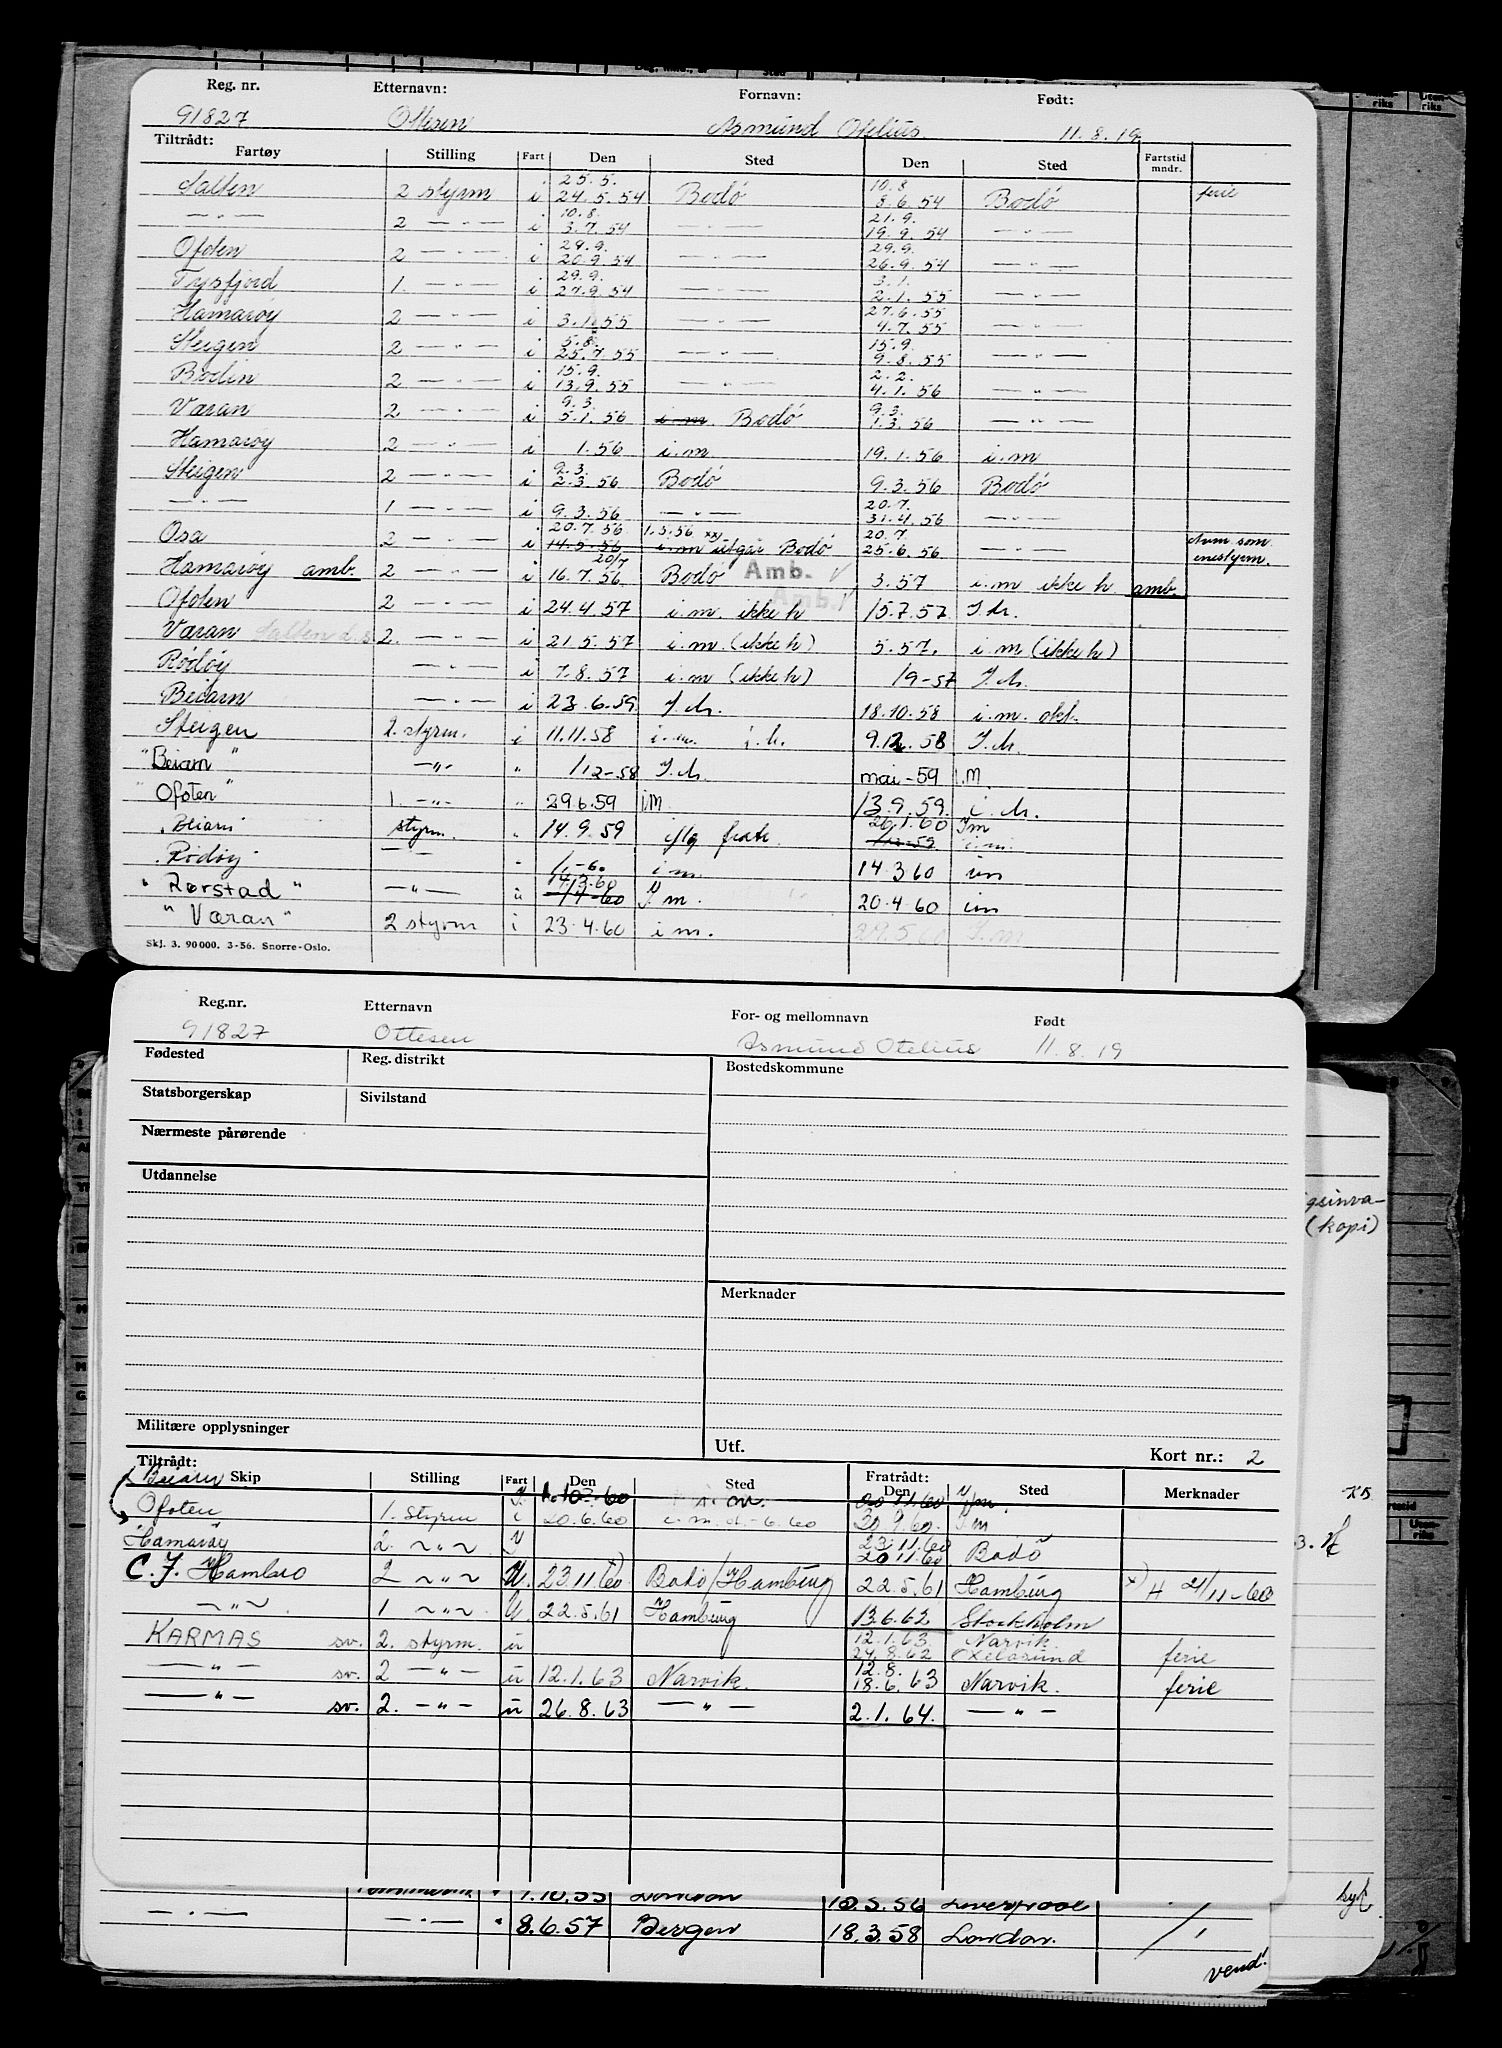 Reg. nr. Etternavn: Fornavn: Født:
91827 Ottesen Asmund Otelius 11.8.19
Tiltrådt:
Fartøy Stilling Fart Den Sted Den Sted Fartstid mndr.
25.5. 10.8
Salten 2 styrm i 24.5.54 Bodø 8.6.54 Bodø ferie
10.8. 21.9.
— " — 2 — " — i 3.7.54 — " — 19.9.54 — " —
29.9. 29.9.
Ofoten 2 — " — i 20.9.54 — " — 26.9.54 — " —
29.9. 3.1.
Tysfjord 1. — " — i 27.9.54 — " — 2.1.55 — " —
27.6.55
Hamarøy 2 — " — i 3.1.55 — " — 4.7.55 — " —
5.8. 15.9.
Steigen 2 — " — i 25.7.55 — " — 9.8.55 — " —
15.9. 2.2.
Bodin 2 — " — i 13.9.55 — " — 4.1.56 — " —
9.3 9.3.
Væran 2 — " — i 5.1.56 i.m. Bodø 1.3.56 — " —
Hamarøy 2 — " — i 1.56 i.m 19.1.56 i.m
9.3.
Steigen 2 — " — i 2.3.56 Bodø 9.3.56 Bodø
20.7.
— " — 1 — " — i 9.3.56 — " — 31.4.56 — " —
20.7.56 1.5.56 xx) 20.7.
Osa 2 — " — i 14.5.56 i.m utgår Bodø 25.6.56 — " — enestyrm.
20/7
Hamarøy amb. 2 — " — i 16.7.56 Bodø Amb. 3.57 i.m ikke h amb.
Amb.
Ofoten 2 — " — i 24.4.57 i.m. ikke h 15.7.57 I.h.
Væran Salten d.s 2. — " — i 21.5.57 i.m. (ikke h) 5.57. i.m (ikke h)
Rødøy — " — i 7.8.57 i.m (ikke h) 19-57 I.h.
Beiarn — " — i 23.6.59 I.h. 18.10.58 i.m. okt.
Steigen 2. styrm. i 11.11.58 i.m. i.h. 9.12.58 I.h.
"Beiarn" — " — " 1/12-58 I.h. mai-59 i.M
"Ofoten" 1. — " — " 29.6.59 i.M. 13.9.59. i.h.
26.1.60 Im
"Beiarn" styrm. " 14.9.59 iflg fratr. 12-59 i.m.
"Rødøy" — " — " 1/1-60 i.m. 14.3.60 im
14/3.60
"Rørstad" — " — " 1/4-60 I m. 20.4.60 im
"Væran" 2 styrm i 23.4.60 i m. 29.5.60 I.m
Skj. 3. 90 000. 3-56. Snorre-Oslo.
Reg.nr. Etternavn For- og mellomnavn Født
91827 Ottesen Asmund Otelius 11.8.19
Fødested Reg. distrikt Bostedskommune
Statsborgerskap Sivilstand
Nærmeste pårørende
Utdannelse
gsinva-
(kopi)
Merknader
Militære opplysninger
Utf. Kort nr.: 2
Tiltrådt: Fratrådt:
Beiarn Skip Stilling Fart Den Sted Den Sted Merknader
1.10.60 i. m. 20.11.60 I/m.
Ofoten 1. Styrm i 20.6.60 i.m.d.-6.60 30.9.60. I m
23.11.60
Hamarøy 2. — " — 20.11.60 Bodø
C. J. Hambro 2 — " — U. 23.11.60 x) Bodø/Hamburg 22.5.61 Hamburg x) H 21/11-60
— " — 1 — " — U. 22.5.61 Hamburg 13.6.62 Stockholm
12.1.63. Narvik.
KARMAS sv. 2. styrm. u 24.8.62 Oxeløsund ferie
12.8.
— " — sv. 2 — " — u 12.1.63 Narvik. 18.6.63 Narvik. ferie
— " — sv. 2. — " — u 26.8.63 — " — 2.1.64. — " —
1.10.55 London 10.5.56 Liverpool
— " — — " — " 8.6.57 Bergen 18.3.58 London.
vend!